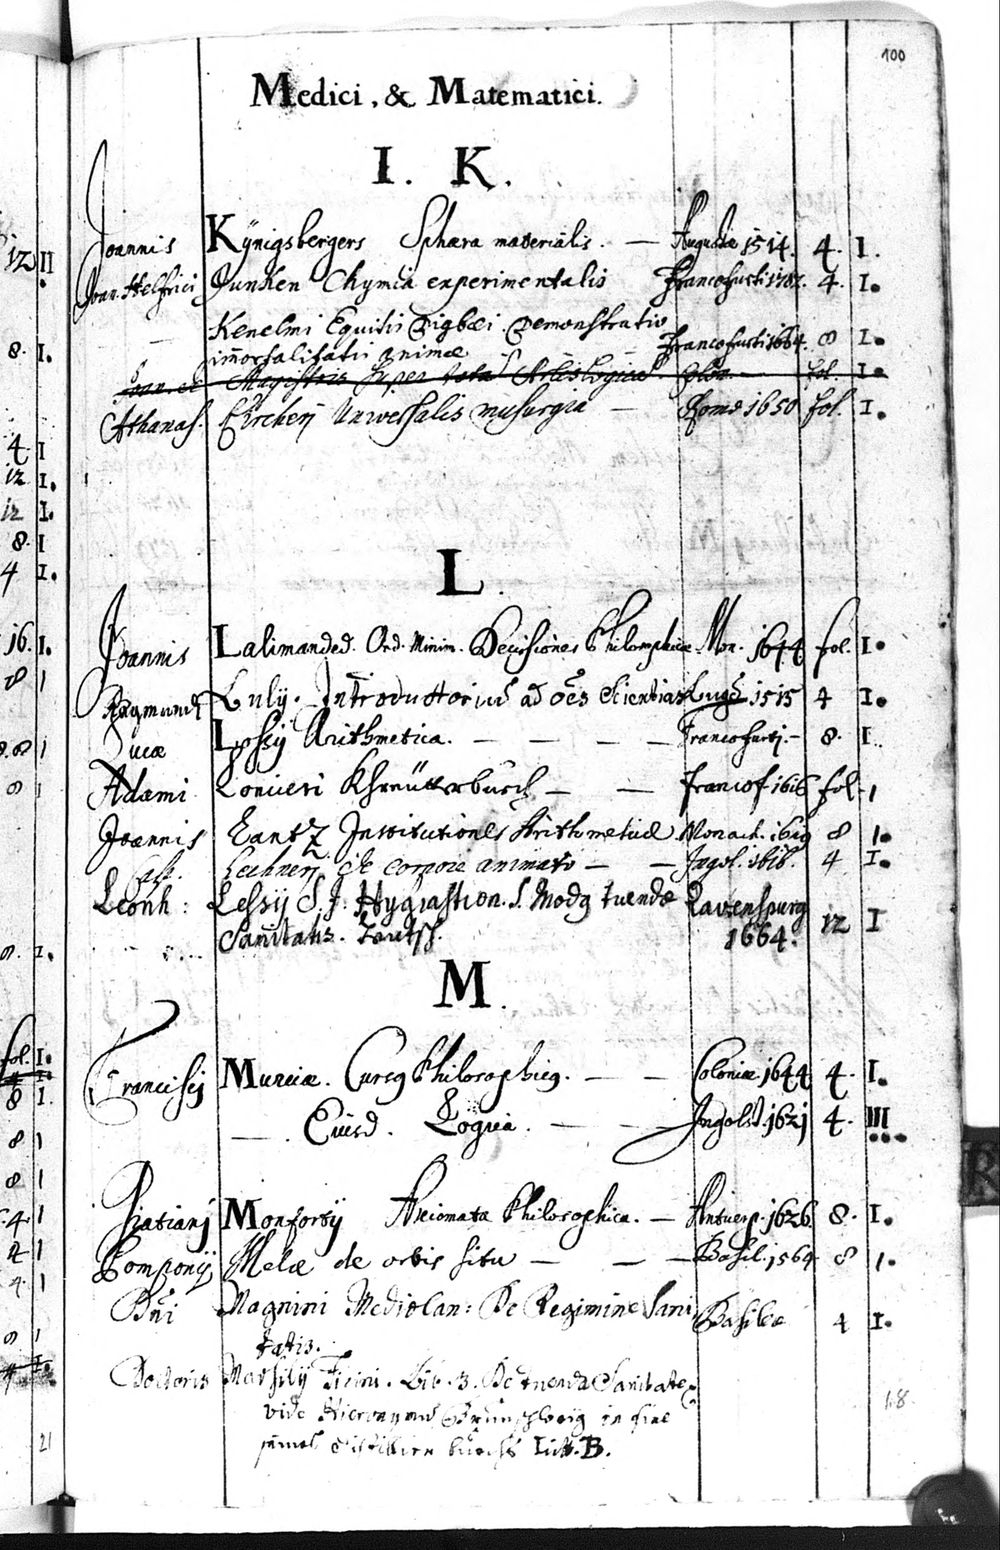 100
Medici, & Matematici.
I. K.
Joannis Kÿnigsbergers Sphæra materialis. — Augustæ 1514. 4. I.
Joan. Helfrici Junken Chymia experimentalis Francofurti 4. I.
Kenelmi Equitis Digbæi Demonstratio
immortalitatis animæ Francofurti 1664. 8 I.
Joan. Magistris super tota fol. I.
Athanas. Kircherj Universalis musurgia — Romæ 1650 fol. I.
L.
Joannis Lalimanded. Ord. Minim. Decisiones Philosophicæ Mon. 1644 fol. I.
Raymundi Lulij. Introductoriū ad oēs scientias Lugd. 1515 4 I.
Lucæ Lossij Arithmetica. — — — — Francofurti. — 8. I.
Adami Loniceri Khreütterbuech — — francof 1616 fol. 1
Joannis Lantz Institutiones Arithmeticæ Monach. 1619 8 1.
Casp. Lechnerj de corpore animato — — Ingol. 1616. 4 I.
Leonh: Lessij S. J. Hygiastion. S. Modq tuendæ Ravenspurg
Sanitatis. Teutsch. 1664. 12 I
M.
Francisci Murciæ. Cursq Philosophicq. — — Coloniæ 1644 4. I.
— . Eiusd. Logica. — — — Ingolst. 1621 4. III
Gratianj Monfortij Axiomata Philosophica. — Antuerp. 1626. 8. I.
Pomponij Melæ de orbis situ — — — Basil. 1564 8 1.
Dñi Magnini Mediolan: De Regimine Sani
tatis. Basileæ 4 I.
Doctoris Marsilij Ficini. Lib. 3. De tuenda Sanitate
vide Hieronymū Brunschweig in fine
Lit. B.
18